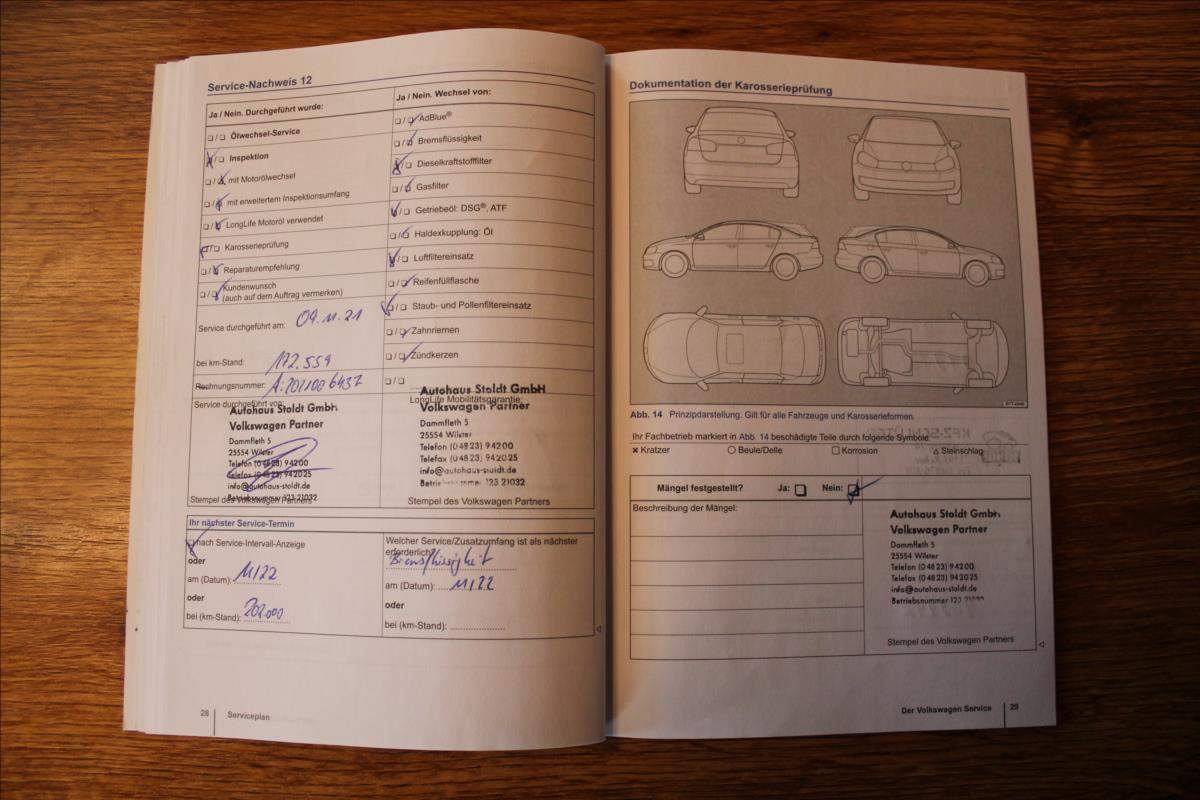 Service-Nachweis 12
Ja / Nein. Durchgeführt wurde:
Ölwechsel-Service
Inspektion
mit Motorölwechsel
mit erweitertem Inspektionsumfang
LongLife Motoröl verwendet
Karosserieprüfung
Reparaturempfehlung
Kundenwunsch
(auch auf dem Auftrag vermerken)
Service durchgeführt am: 09.11.21
bei km-Stand: 172.559
Rechnungsnummer:
Service durchgeführt von:
Autohaus Stoldt GmbH
Volkswagen Partner
Dammfleth 5
25554 Wilster
Telefon (04823) 94200
Telefax (04823) 942025
info@autohaus-stoldt.de
Betriebsnummer 123 21032
Stempel des Volkswagen Partners
Ja / Nein. Wechsel von:
AdBlue®
Bremsflüssigkeit
Dieselkraftstofffilter
Gasfilter
Getriebeöl: DSG®, ATF
Haldexkupplung: Öl
Luftfiltereinsatz
Reifenfüllflasche
Staub- und Pollenfiltereinsatz
Zahnriemen
Zündkerzen
LongLife Mobilitätsgarantie:
Autohaus Stoldt GmbH
Volkswagen Partner
Dammfleth 5
25554 Wilster
Telefon (04823) 94200
Telefax (04823) 942025
info@autohaus-stoldt.de
123 21032
Stempel des Volkswagen Partners
Ihr nächster Service-Termin
nach Service-Intervall-Anzeige
oder
am (Datum): 11/22
oder
bei (km-Stand): 202.000
Welcher Service/Zusatzumfang ist als nächster
erforderlich?
Bremsflüssigkeit
am (Datum): 11/22
oder
bei (km-Stand):
28 Serviceplan
Dokumentation der Karosserieprüfung
Abb. 14 Prinzipdarstellung. Gilt für alle Fahrzeuge und Karosserieformen.
Ihr Fachbetrieb markiert in Abb. 14 beschädigte Teile durch folgende Symbole:
Kratzer Beule/Delle Korrosion Steinschlag
Mängel festgestellt? Ja: Nein:
Beschreibung der Mängel:
Autohaus Stoldt GmbH
Volkswagen Partner
Dammfleth 5
25554 Wilster
Telefon (04823) 94200
Telefax (04823) 942025
info@autohaus-stoldt.de
Betriebsnummer 123 21032
Stempel des Volkswagen Partners
Der Volkswagen Service 29